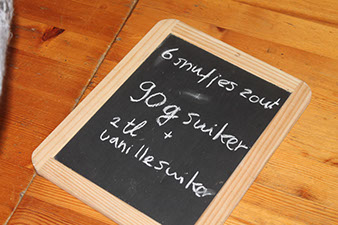 6 snufjes zout
90g suiker
+
2 tl
vanillesuiker